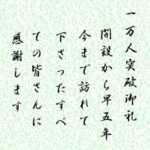 一万人突破御礼
開設から早五年
今まで訪れて
下さったすべ
ての皆さんに
感謝します